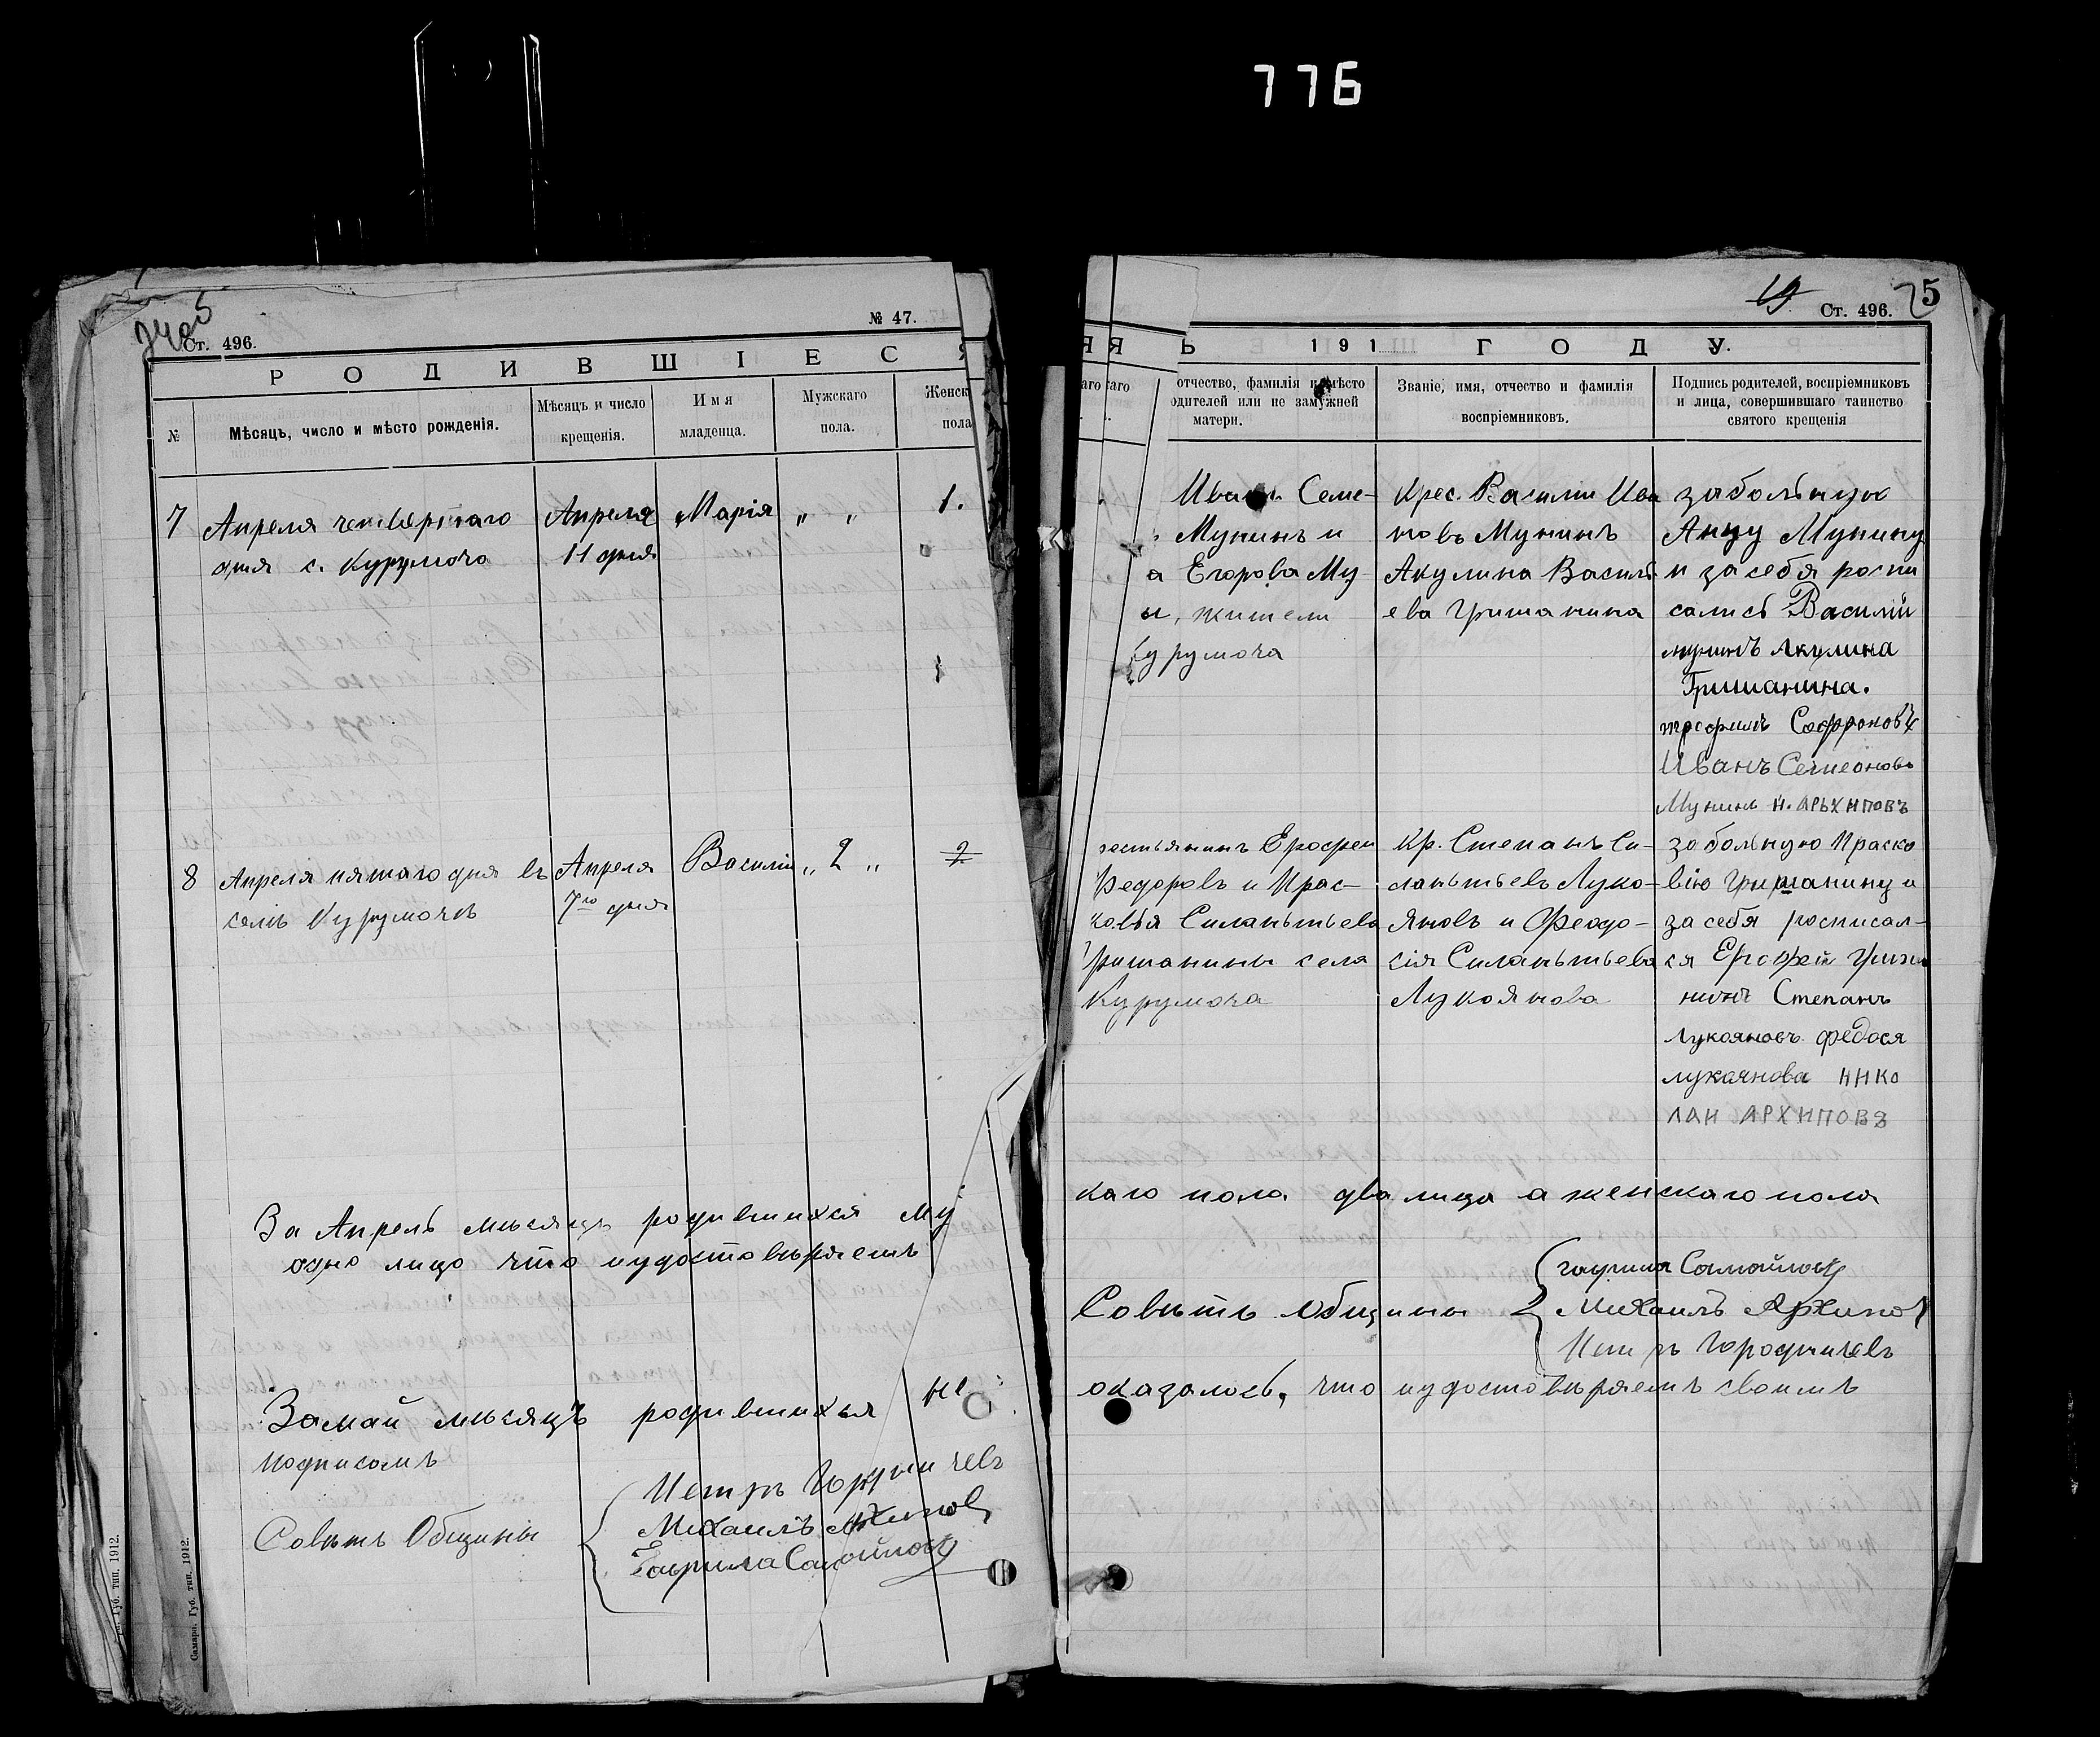 776
Ст. 496.
№ 47.
РОДИВШІЕС
№
Мѣсяцъ, число и мѣсто рожденія.
Мѣсяцъ и число
крещенія.
Имя
младенца.
Мужскаго
пола.
Женск
пола
7
Апреля четвертаго
дня с. Курумоча
Апреля
11 дня
Марія
„ „
1.
8
Апреля пятаго дня въ
селѣ Курумочѣ
Апреля
7го дня
Василій
„ 2 „
2
За Апрель мѣсяцъ родившихся му
одно лицо что и удостовѣряетъ
За май мѣсяцъ родившихся не
подписомъ
Совѣтъ Общины
Петръ Городничевъ
Михаилъ Архипов
Гаврила Самойлов
Самара, Губ. тип. 1912.
19
75
Ст. 496.
Ь 191 ГОДУ.
отчество, фамилія и мѣсто
одителей или не замужней
матери.
Званіе, имя, отчество и фамилія
воспріемниковъ.
Подпись родителей, воспріемниковъ
и лица, совершившаго таинство
святого крещенія
Иванъ Семе-
Мунинъ и
а Егорова Му-
ы, жители
Курумоча
Крес. Василий Ива
новъ Мунинъ
Акулина Василь-
ева Гришанина
за больную
Анну Мунину
и за себя роспи
сались Василий
мунинъ Акулина
Гришанина.
трофимъ Софроновъ
Иванъ Семеоновъ
Мунинъ Н. АРЬХИПОВЪ
рестьянинъ Ерофеи
Федоровъ и Прас-
ковья Силантьева
Гришанины села
Курумоча
Кр. Степанъ Си-
лантьевъ Луко-
яновъ и Феодо-
сія Силантьева
Лукоянова
за больную Праско
вію Гришанину и
за себя росписал-
ся Ерофей Гриша
нинъ Степанъ
Лукояновъ федося
лукоянова НИКО
ЛАИ АРХИПОВЪ
каго пола два лица а женскаго пола
Совѣтъ Общины
гаврила Самойлов
Михаилъ Архипов
Петръ Городничевъ
оказалось, что и удостовѣряетъ своимъ